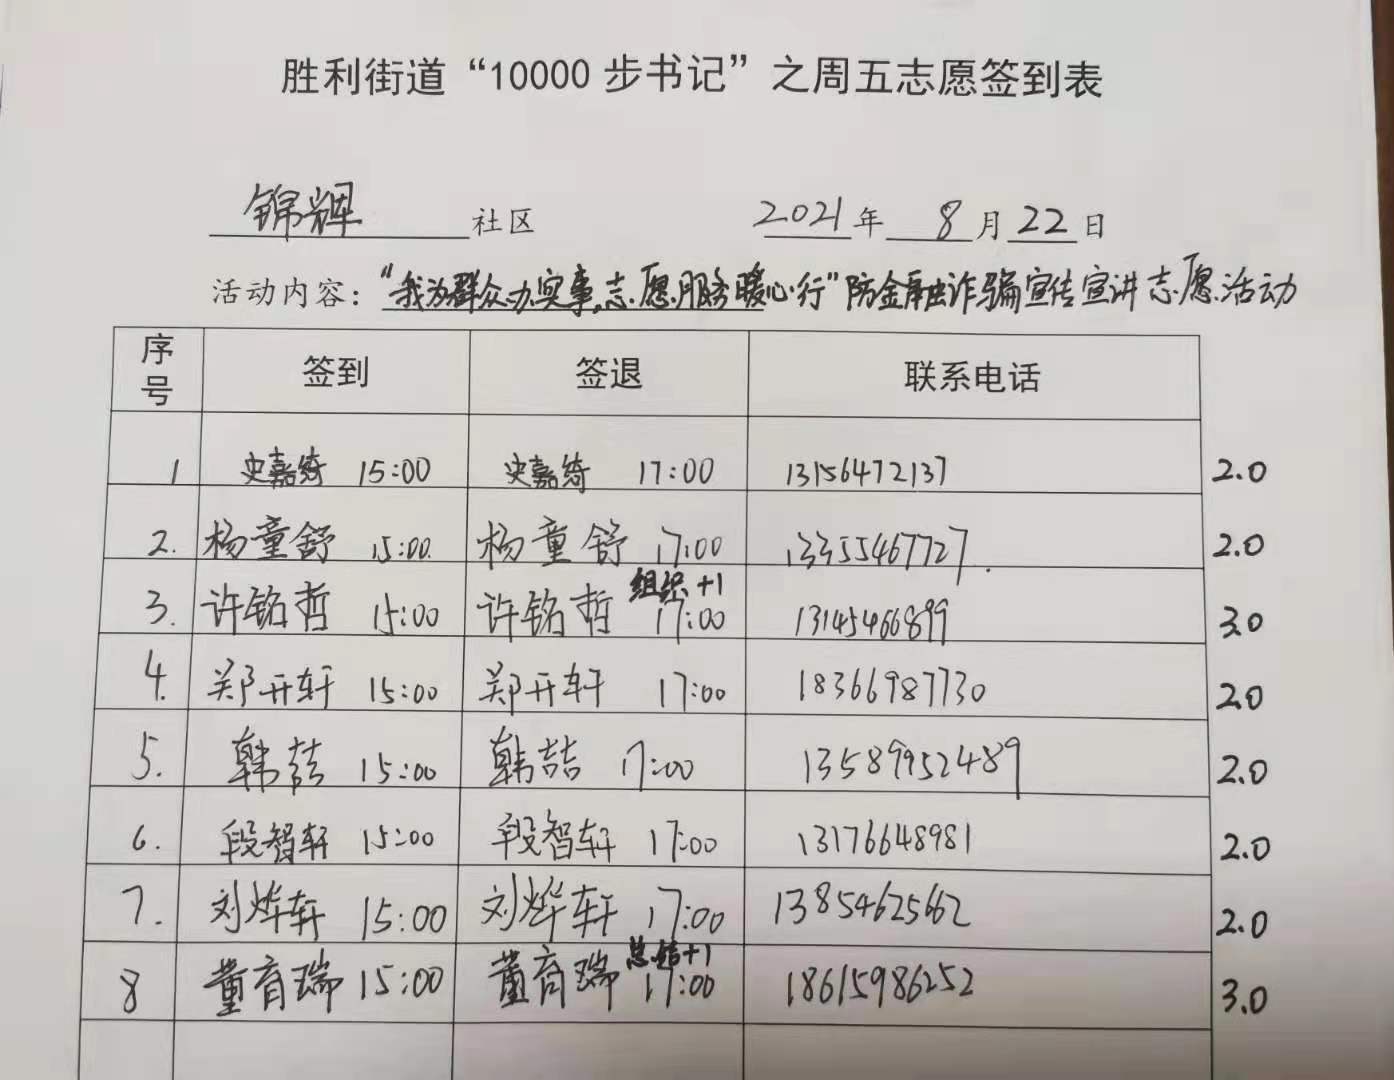 胜利街道“10000 步书记”之周五志愿签到表
锦辉 社区 2021 年 8 月 22 日
活动内容：“我为群众办实事，志愿服务暖心行”防金融诈骗宣传宣讲志愿活动
序号 签到 签退 联系电话
1 史嘉绮 15:00 史嘉绮 17:00 13156472137 2.0
2. 杨童舒 15:00. 杨童舒 17:00 13355467727. 2.0
组织+1
3. 许铭哲 15:00 许铭哲 17:00 13145466899 3.0
4. 郑开轩 15:00 郑开轩 17:00 18366987730 2.0
5. 韩喆 15:00 韩喆 17:00 13589952489 2.0
6. 段智轩 15:00 段智轩 17:00 13176648981 2.0
7. 刘烨轩 15:00 刘烨轩 17:00 13854625662 2.0
总结+1
8 董育瑞 15:00 董育瑞 17:00 18615986252 3.0